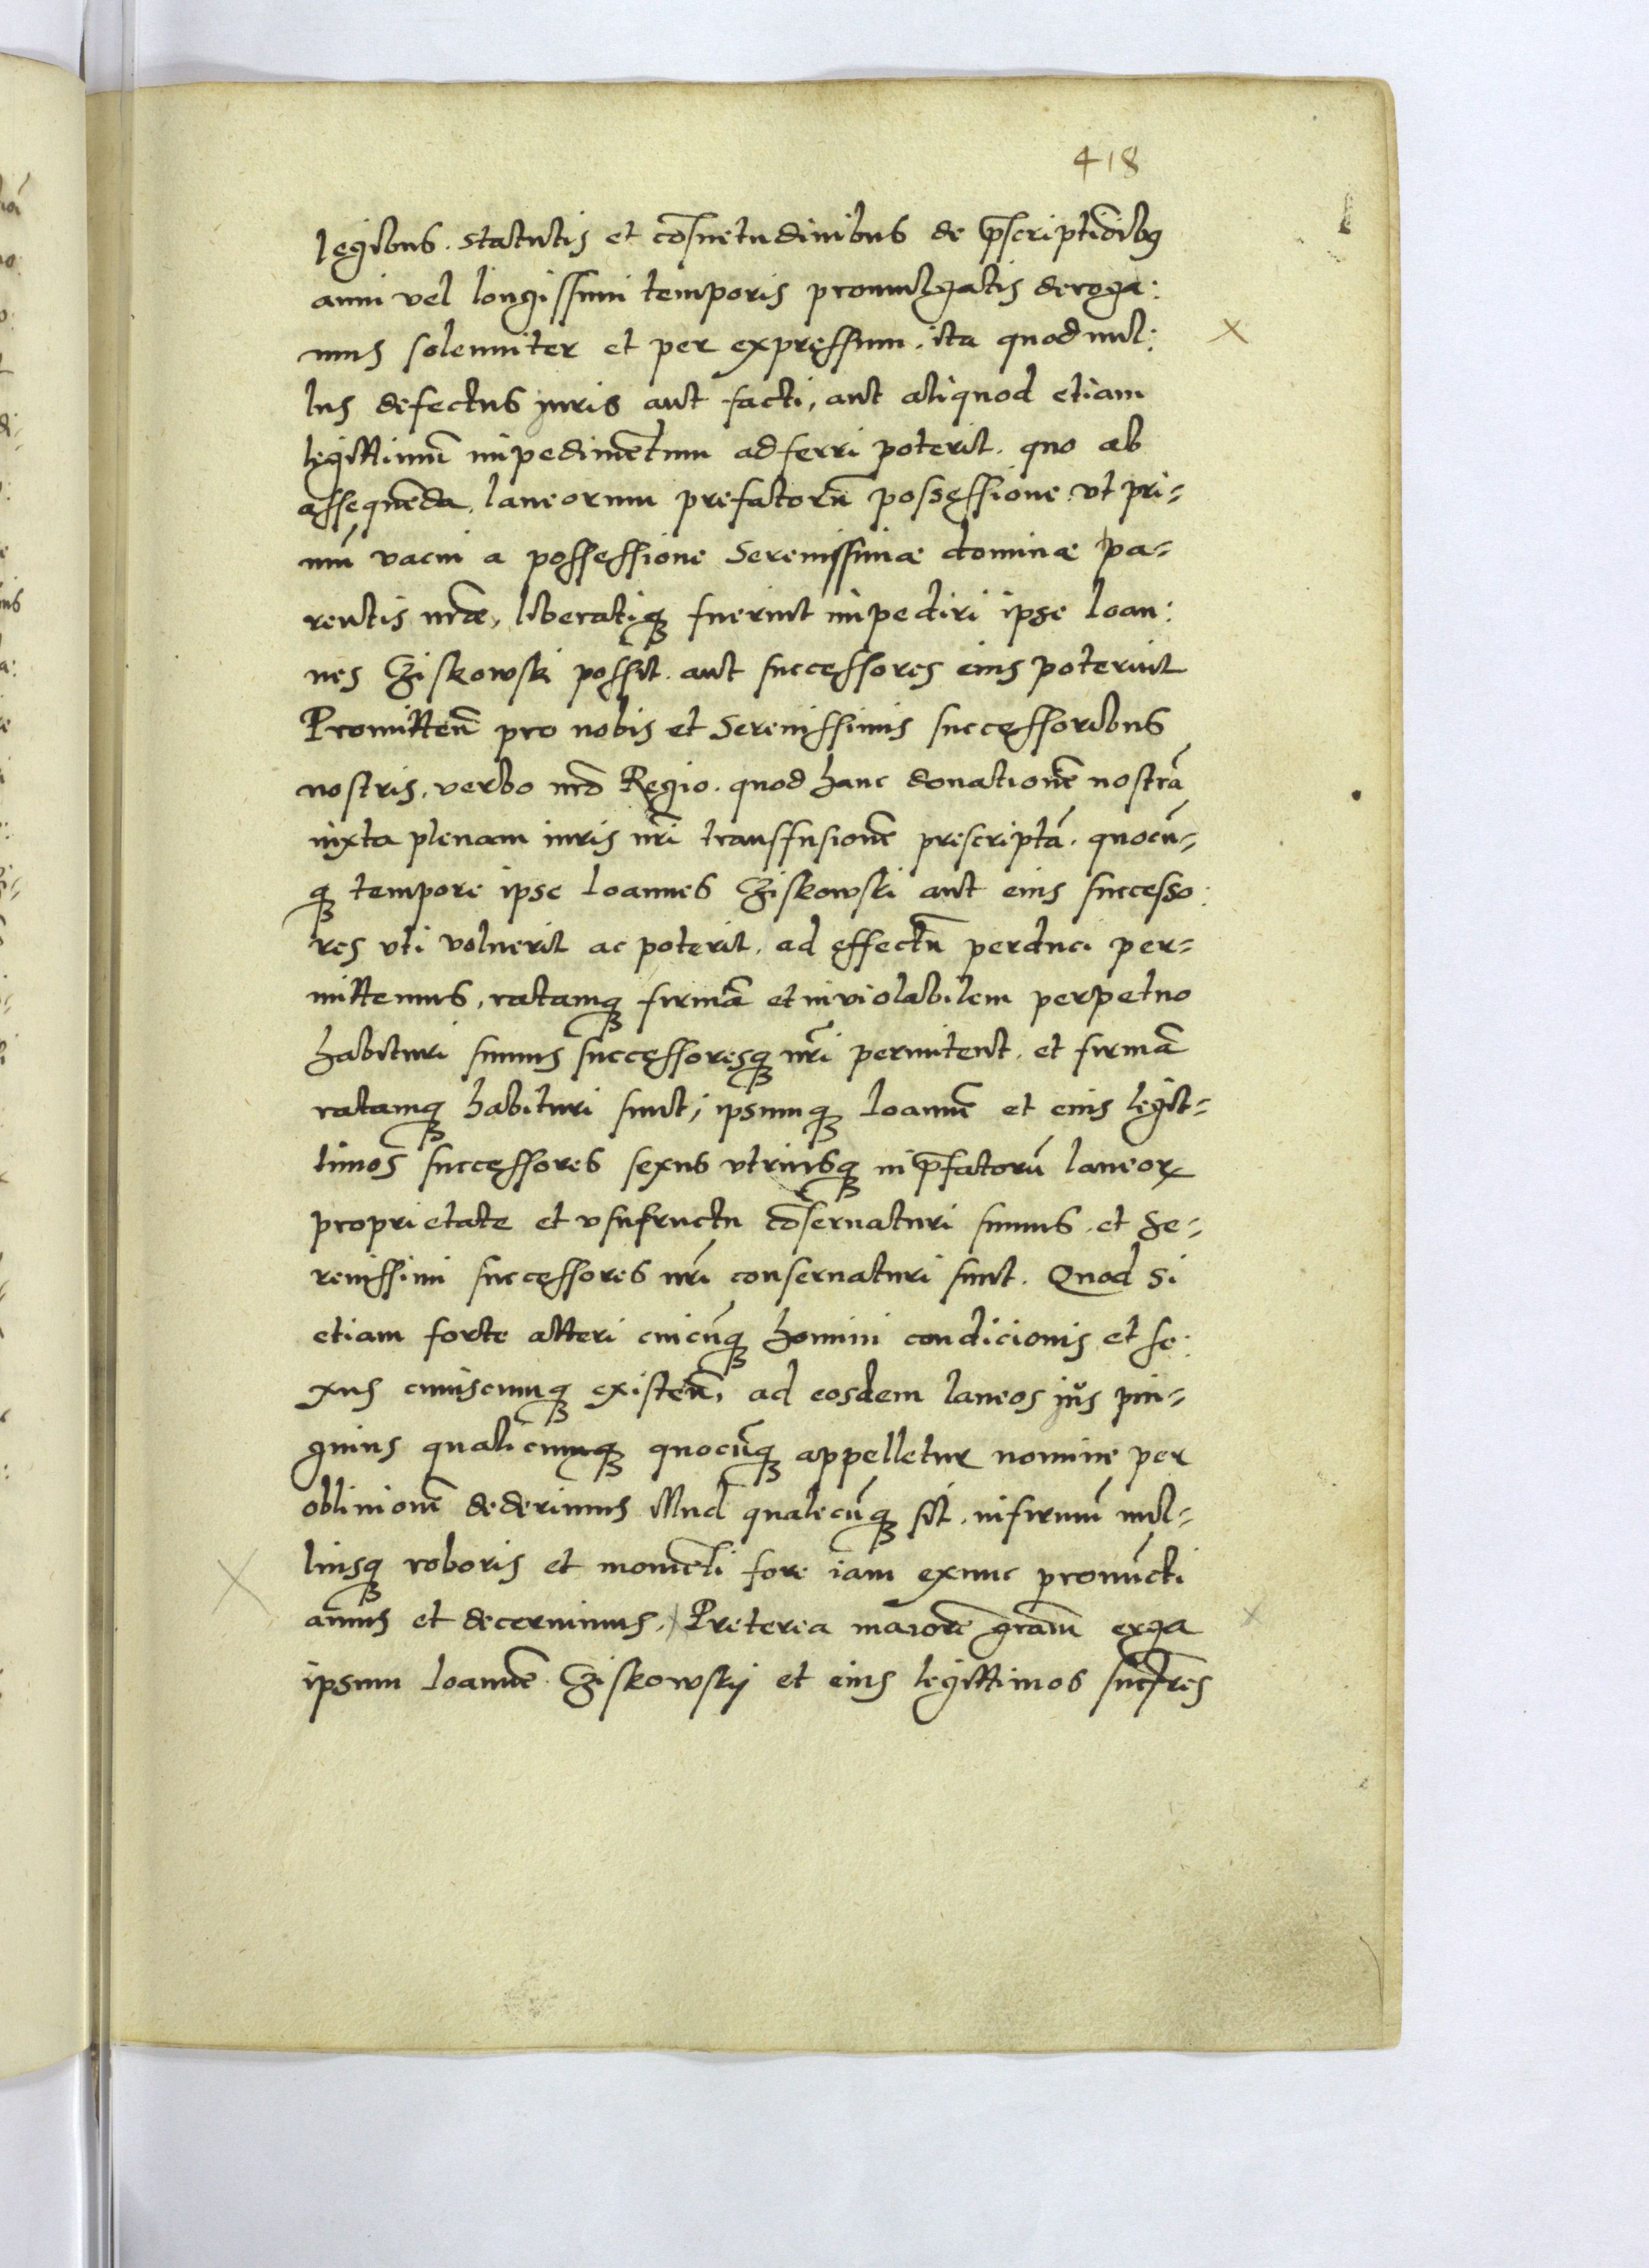 418
legibus. statutis et cõsuetudinibus de p̃scriptiõibꝯ
anni vel longissimi temporis promulgatis deroga:
mus solenniter et per expressum. ita quod nul:
lus defectus juris aut facti, aut aliquod etiam
legittimũ impedimẽtum adferri poterit. quo ab
assequẽda, laneorum prefatorũ possessione vt pri-
mũ vacui a possessione Serenissimæ dominæ pa-
rentis nr̃æ, liberatiqꝫ fuerint impediri ipse Ioan:
nes Cziskowski possit. aut successores eius poterint
Promitteñ pro nobis et Serenissimis successoribus
nostris, verbo nr̃o Regio. quod hanc donationẽ nostrã
iuxta plenam iuris nr̃i transfusionẽ prescriptã. quocũ-
qꝫ tempore ipse Ioannes Cziskowski aut eius successo:
res vti voluerit ac poterit, ad effectũ perduci per-
mittemus, ratamqꝫ firmã et inviolabilem perpetuo
habituri sumus successoresqꝫ nr̃i permitent. et firmã
ratamqꝫ habituri sunt, ipsumqꝫ Ioannẽ et eius legit-
timos successores sexus vtriusqꝫ in p̃fatorũ laneoꝝ
proprietate et vsufructu cõseruaturi sumus. et Se-
renissimi successores nr̃i conseruaturi sunt. Quod si
etiam forte alteri cuicũqꝫ homini condicionis et se:
xus cuiuscumqꝫ existeñ, ad eosdem laneos jus pin-
guius qualicumqꝫ quocũqꝫ appelletur nomine per
obliuionẽ dederimus illud qualecũqꝫ sit. infirmũ nul-
liusqꝫ roboris et momẽti fore iam exnunc pronũcti
amus et decernimus. Preterea maiorẽ gr̃aḿ erga
ipsum Ioannẽ Cziskowskij et eius legittimos succr̃es